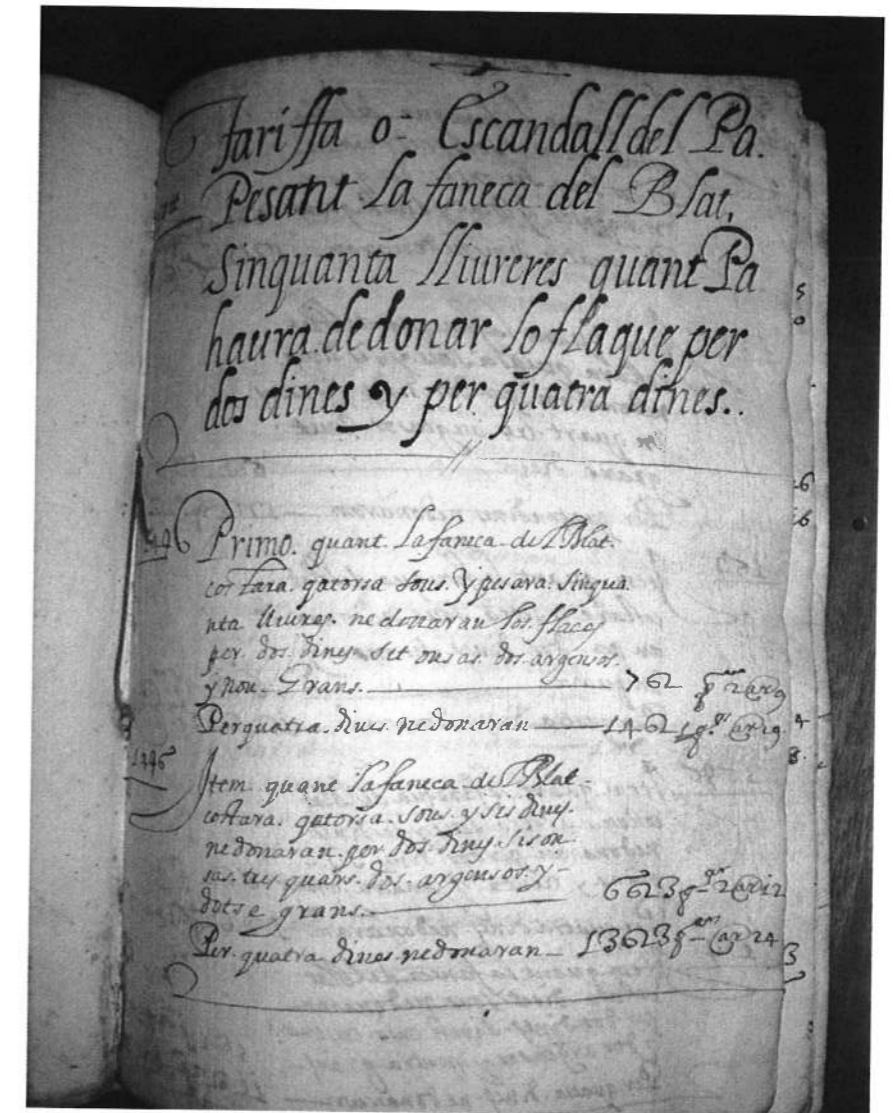 Tariffa o: Escandall del Pa.
Pesant La faneca del Blat,
Sinquanta lliureres quant Pa
haura de donar lo flaque per
dos dines y per quatra dines..
Primo. quant. La faneca del Blat.
costara. qatorsa sous. y pesara. sinqua
nta lliures. ne donaran los. flaces
per. dos. dines. set onsas. dos. argensos.
y nou. Grans.
Per quatra. dines nedonaran
1496
Item. quant Lafaneca del Blat
costara. qatorsa. sous. y ses dines.
ne donaran. per dos. dines. sis on
sas. tres quars. dos. argensos. y
dotse grans.
Per. quatra dines nedonaran